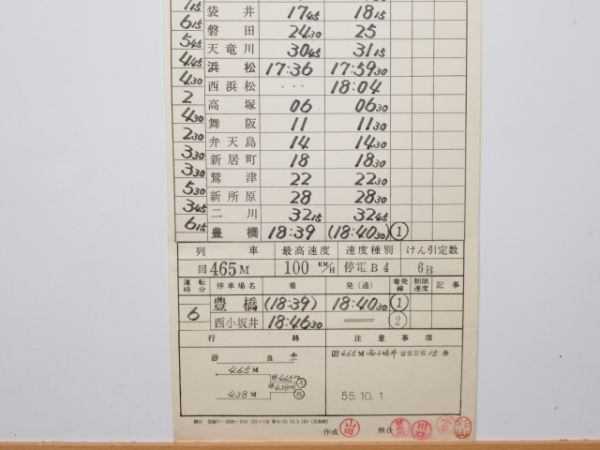 1 15 袋井 17 45 18 15
6 15 磐田 24 30 25
5 45 天竜川 30 45 31 15
4 45 浜松 17:36 17:59 30
4 30 西浜松 ... 18:04
2 高塚 06 06 30
4 30 舞阪 11 11 30
2 30 弁天島 14 14 30
3 30 新居町 18 18 30
3 30 鷲津 22 22 30
5 30 新所原 28 28 30
3 45 二川 32 15 32 45
6 15 豊橋 18:39 (18:40 30) ①
列車 最高速度 速度種別 けん引定数
回465M 100 KM/H 停電B4 6B
運転時分 停車場名 着 発(通) 着発線 制限速度 記事
豊橋 (18:39) 18:40 30 ①
6 西小坂井 18:46 30 ══ ②
行路 注意事項
465M
回465M
438M
55.10.1
作成 山田